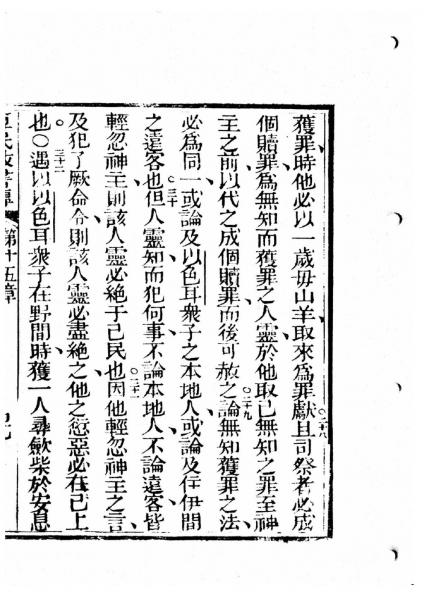 獲罪時他必以一歲毋山羊取來爲罪獻○二十八且司祭者必成
個贖罪爲無知而獲罪之人靈於他取已無知之罪至神
主之前以代之成個贖罪而後可赦之○二十九論無知獲罪之法
必爲同一○三十或論及以色耳衆子之本地人或論及伊間
之遠客也但人靈知而犯何事不論本地人不論遠客皆
輕忽神主則該人靈必絶于己民也○三十一因他輕忽神主之言
及犯了厥命令則該人靈必盡絶之他之愆惡必在己上
也○三十二遇以以色耳衆子在野間時獲一人尋斂柴於安息
第十五章